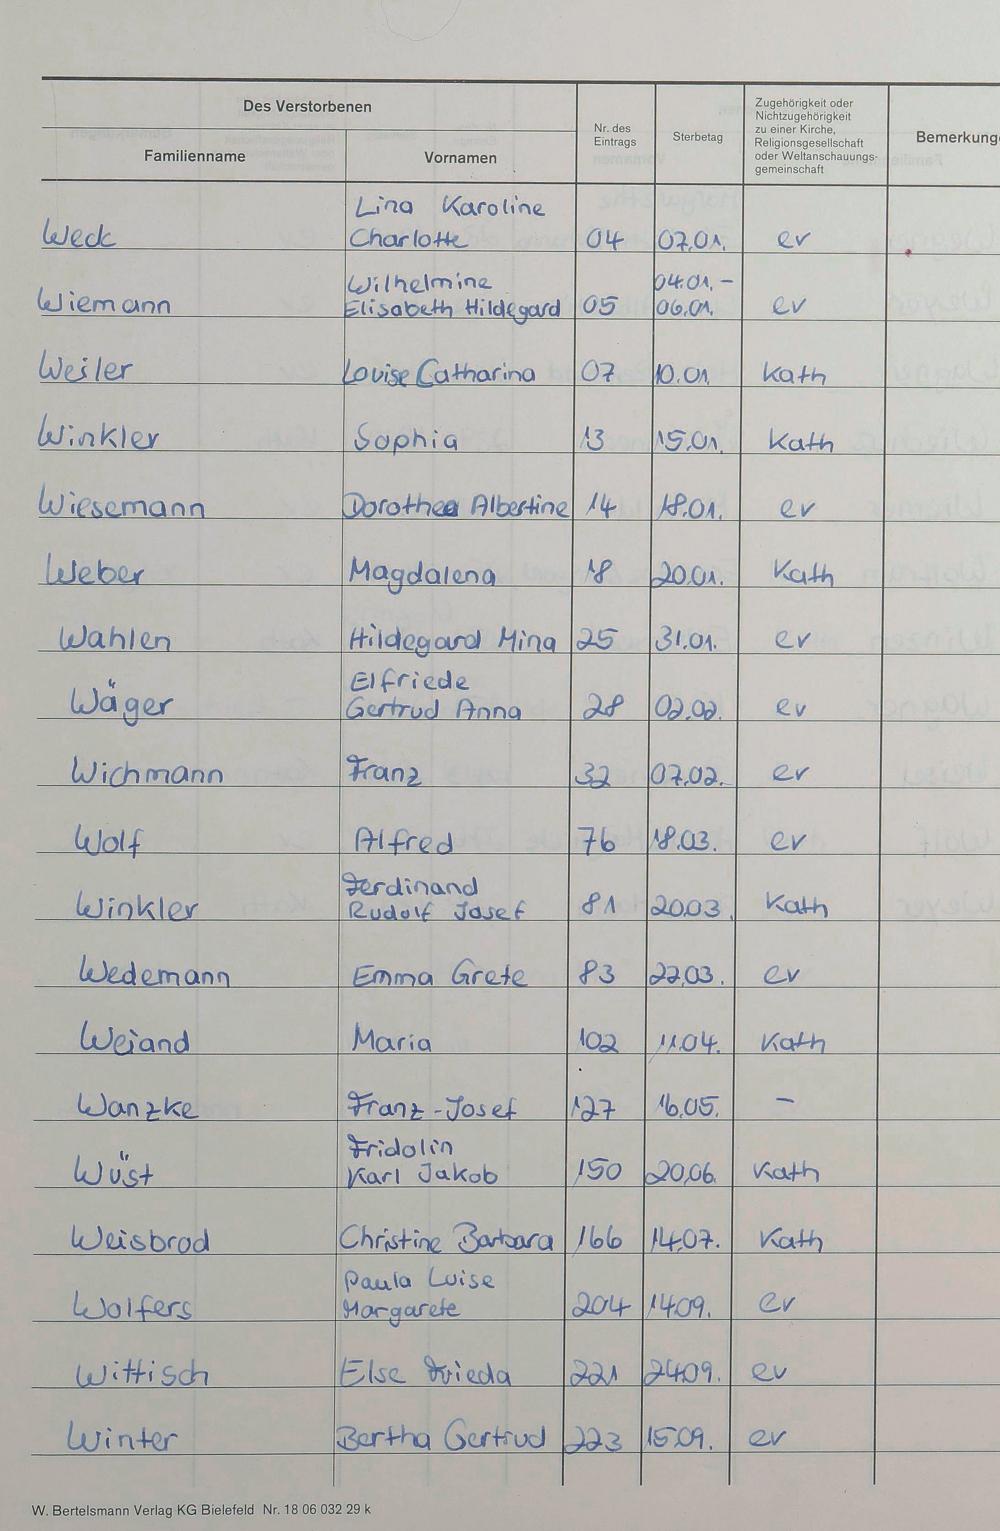 Des Verstorbenen
Familienname
Vornamen
Nr. des
Eintrags
Sterbetag
Zugehörigkeit oder
Nichtzugehörigkeit
zu einer Kirche,
Religionsgesellschaft
oder Weltanschauungs-
gemeinschaft
Bemerkung
Lina Karoline
Weck Charlotte 04 07.01. ev
Wilhelmine 04.01.-
Wiemann Elisabeth Hildegard 05 06.01. ev
Weiler Louise Catharina 07 10.01. Kath
Winkler Sophia 13 15.01. Kath
Wiesemann Dorothea Albertine 14 18.01. ev
Weber Magdalena 18 20.01. Kath
Wahlen Hildegard Mina 25 31.01. ev
Elfriede
Wäger Gertrud Anna 28 02.02. ev
Wichmann Franz 32 07.02. ev
Wolf Alfred 76 18.03. ev
Ferdinand
Winkler Rudolf Josef 81 20.03. Kath
Wedemann Emma Grete 83 22.03. ev
Weiand Maria 102 11.04. Kath
Wanzke Franz-Josef 127 16.05. -
Fridolin
Wüst Karl Jakob 150 20.06. Kath
Weisbrod Christine Barbara 166 14.07. Kath
Paula Luise
Wolfers Margarete 204 14.09. ev
Wittisch Else Frieda 221 24.09. ev
Winter Bertha Gertrud 223 15.09. ev
W. Bertelsmann Verlag KG Bielefeld Nr. 18 06 032 29 k